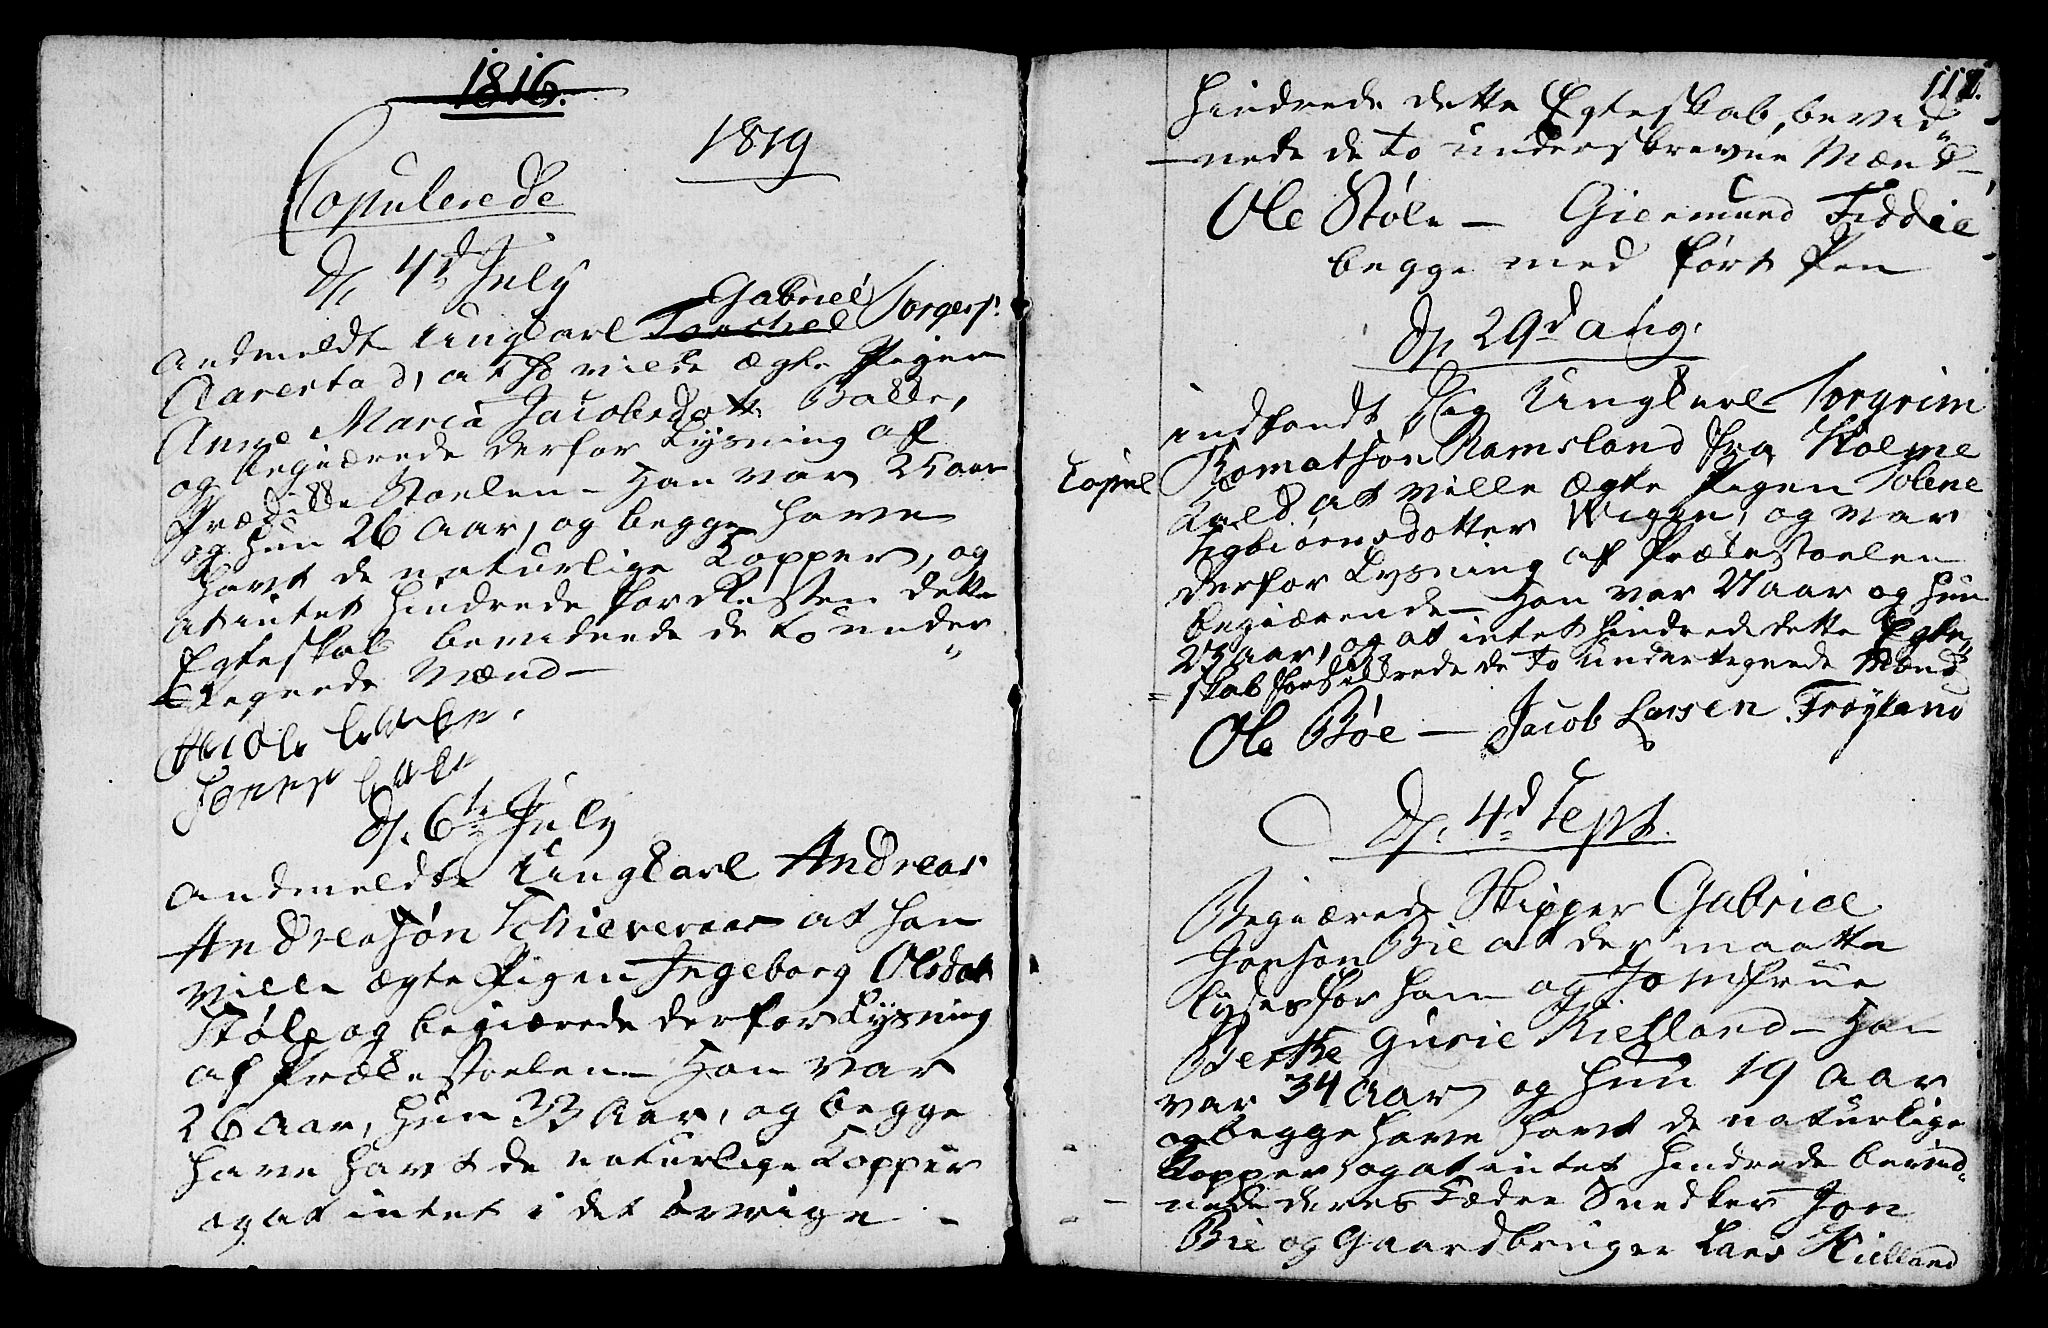 1816.
1819
Copulerede
d. 4d July
Andmeldte Ungkarl Torchel Gabriel Torgersf.
Aarestad, at Ha vilde ægte Pigen
Anne Maria Jacobsdott. Bakke,
og begiærede derfor Lysning af
Prædikke Stoelen - Han var 25 aar
og hun 26 Aar, og begge have
havt de naturlige Kopper, og
at intet hindrede for Resten dette
Egteskab bevidnede de to under
tegnede Mænd -
d. 6te July
andmeldte Ungkarl Andreas
Andreasøn at han
ville ægte Pigen Ingeborg Olsdot
Støle og begiærede derfor Lysning
af Prækestoelen - Han var
26 Aar, hun 33 Aar, og begge
have havt de naturlige Kopper
og at intet i det övrige -
117.
hindrede dette Egteskab, bevid-
nede de to underskrevne Mænd -
Ole Støle - Giermund Fiddie
begge med ført Pen
d. 29d Aug.
indfandt Sig Ungkarl Torgrim
Tomatsøn Ramsland fra Holme
Copul
Kald at ville Ægte Pigen Tolene
Esbiørnsdotter Wigen, og var
derfor Lysning af Prækestoelen
begiærende - Han var 27 aar og hun
23 Aar, og at intet hindrede dette Egte-
skab forsikkrede de to undertegnede Mænd
Ole Bøe - Jacob Larsen Frøyland
d. 4d Sept.
Begiærede Skipper Gabriel
Jonson Bie at der maatte
lyses for ham og Jomfrue
Berthe Gurie Kielland - Han
var 34 Aar og hun 19 Aar
og begge have havt de naturlige
Kopper, og at intet hindrede bevid-
nede deres Fædre Snedker Jon
Bie og Gaardbruger Lars Kielland